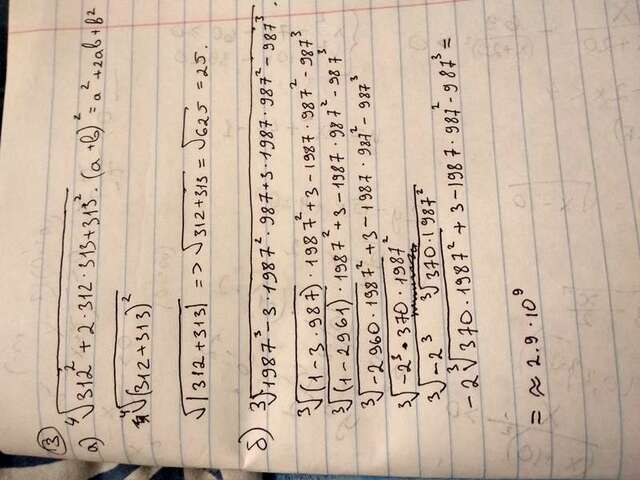 ③
а) ⁴√312² + 2·312·313+313². (a+b)² = a² + 2ab + b²
⁴√(312+313)²
√|312+313| => √312+313 = √625 = 25.
б) ³√1987³ - 3·1987²·987+3·1987·987² - 987³.
³√(1-3·987)·1987² + 3 - 1987·987² - 987³
³√(1-2961)·1987² + 3 - 1987·987² - 987³
³√-2960·1987² + 3 - 1987·987² - 987³
³√-2³·370·1987²
³√-2³ ³√370·1987²
-2 ³√370·1987² + 3 - 1987·987² - 987³ =
= ≈ 2.9·10⁹